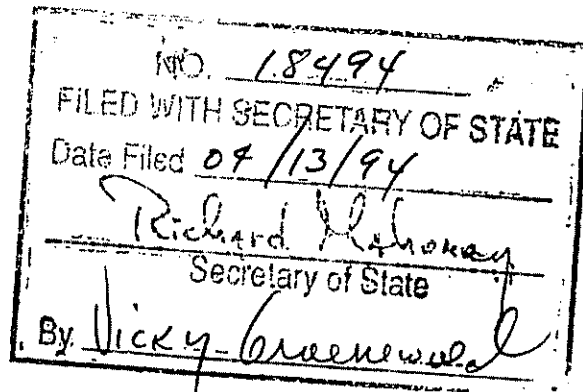 NO. 18494
FILED WITH SECRETARY OF STATE
Date Filed 04/13/94
Richard Mahoney
Secretary of State
By Vicky Groenewold